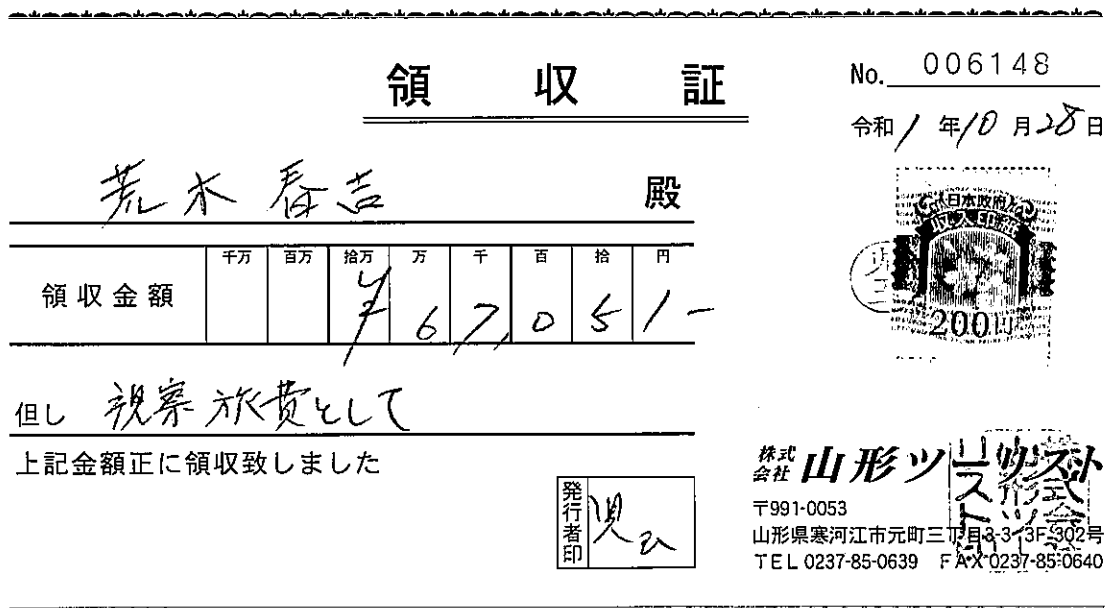 領収証
No. 006148
令和1年10月28日
荒木春吉 殿
領収金額
千万 百万 拾万 万 千 百 拾 円
¥67,051-
但し 視察旅費として
上記金額正に領収致しました
日本政府
収入印紙
200円
発行者印
株式会社 山形ツーリスト
〒991-0053
山形県寒河江市元町三丁目3-3-13F-302号
TEL 0237-85-0639 FAX 0237-85-0640